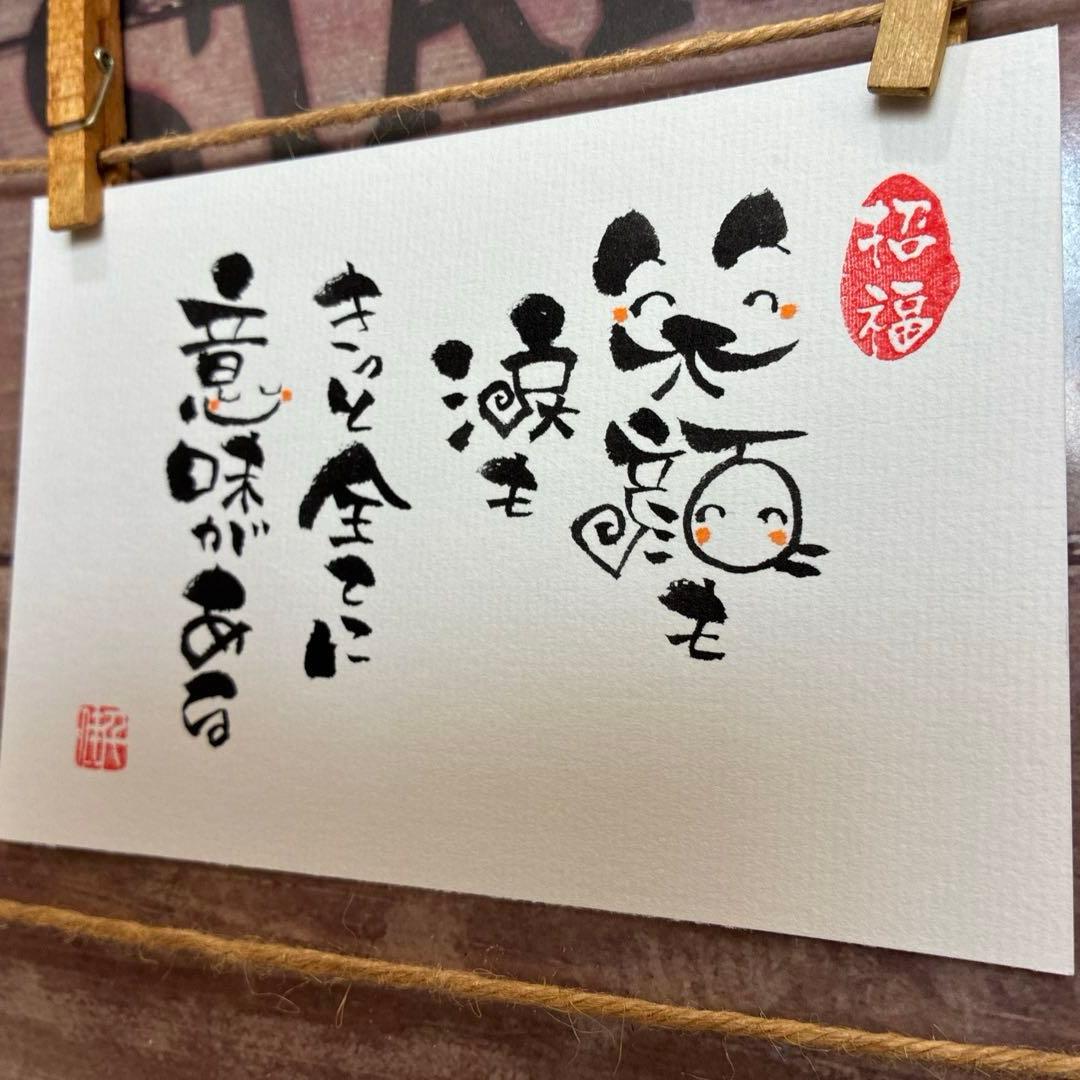 招福
笑顔も
涙も
きっと全てに
意味がある